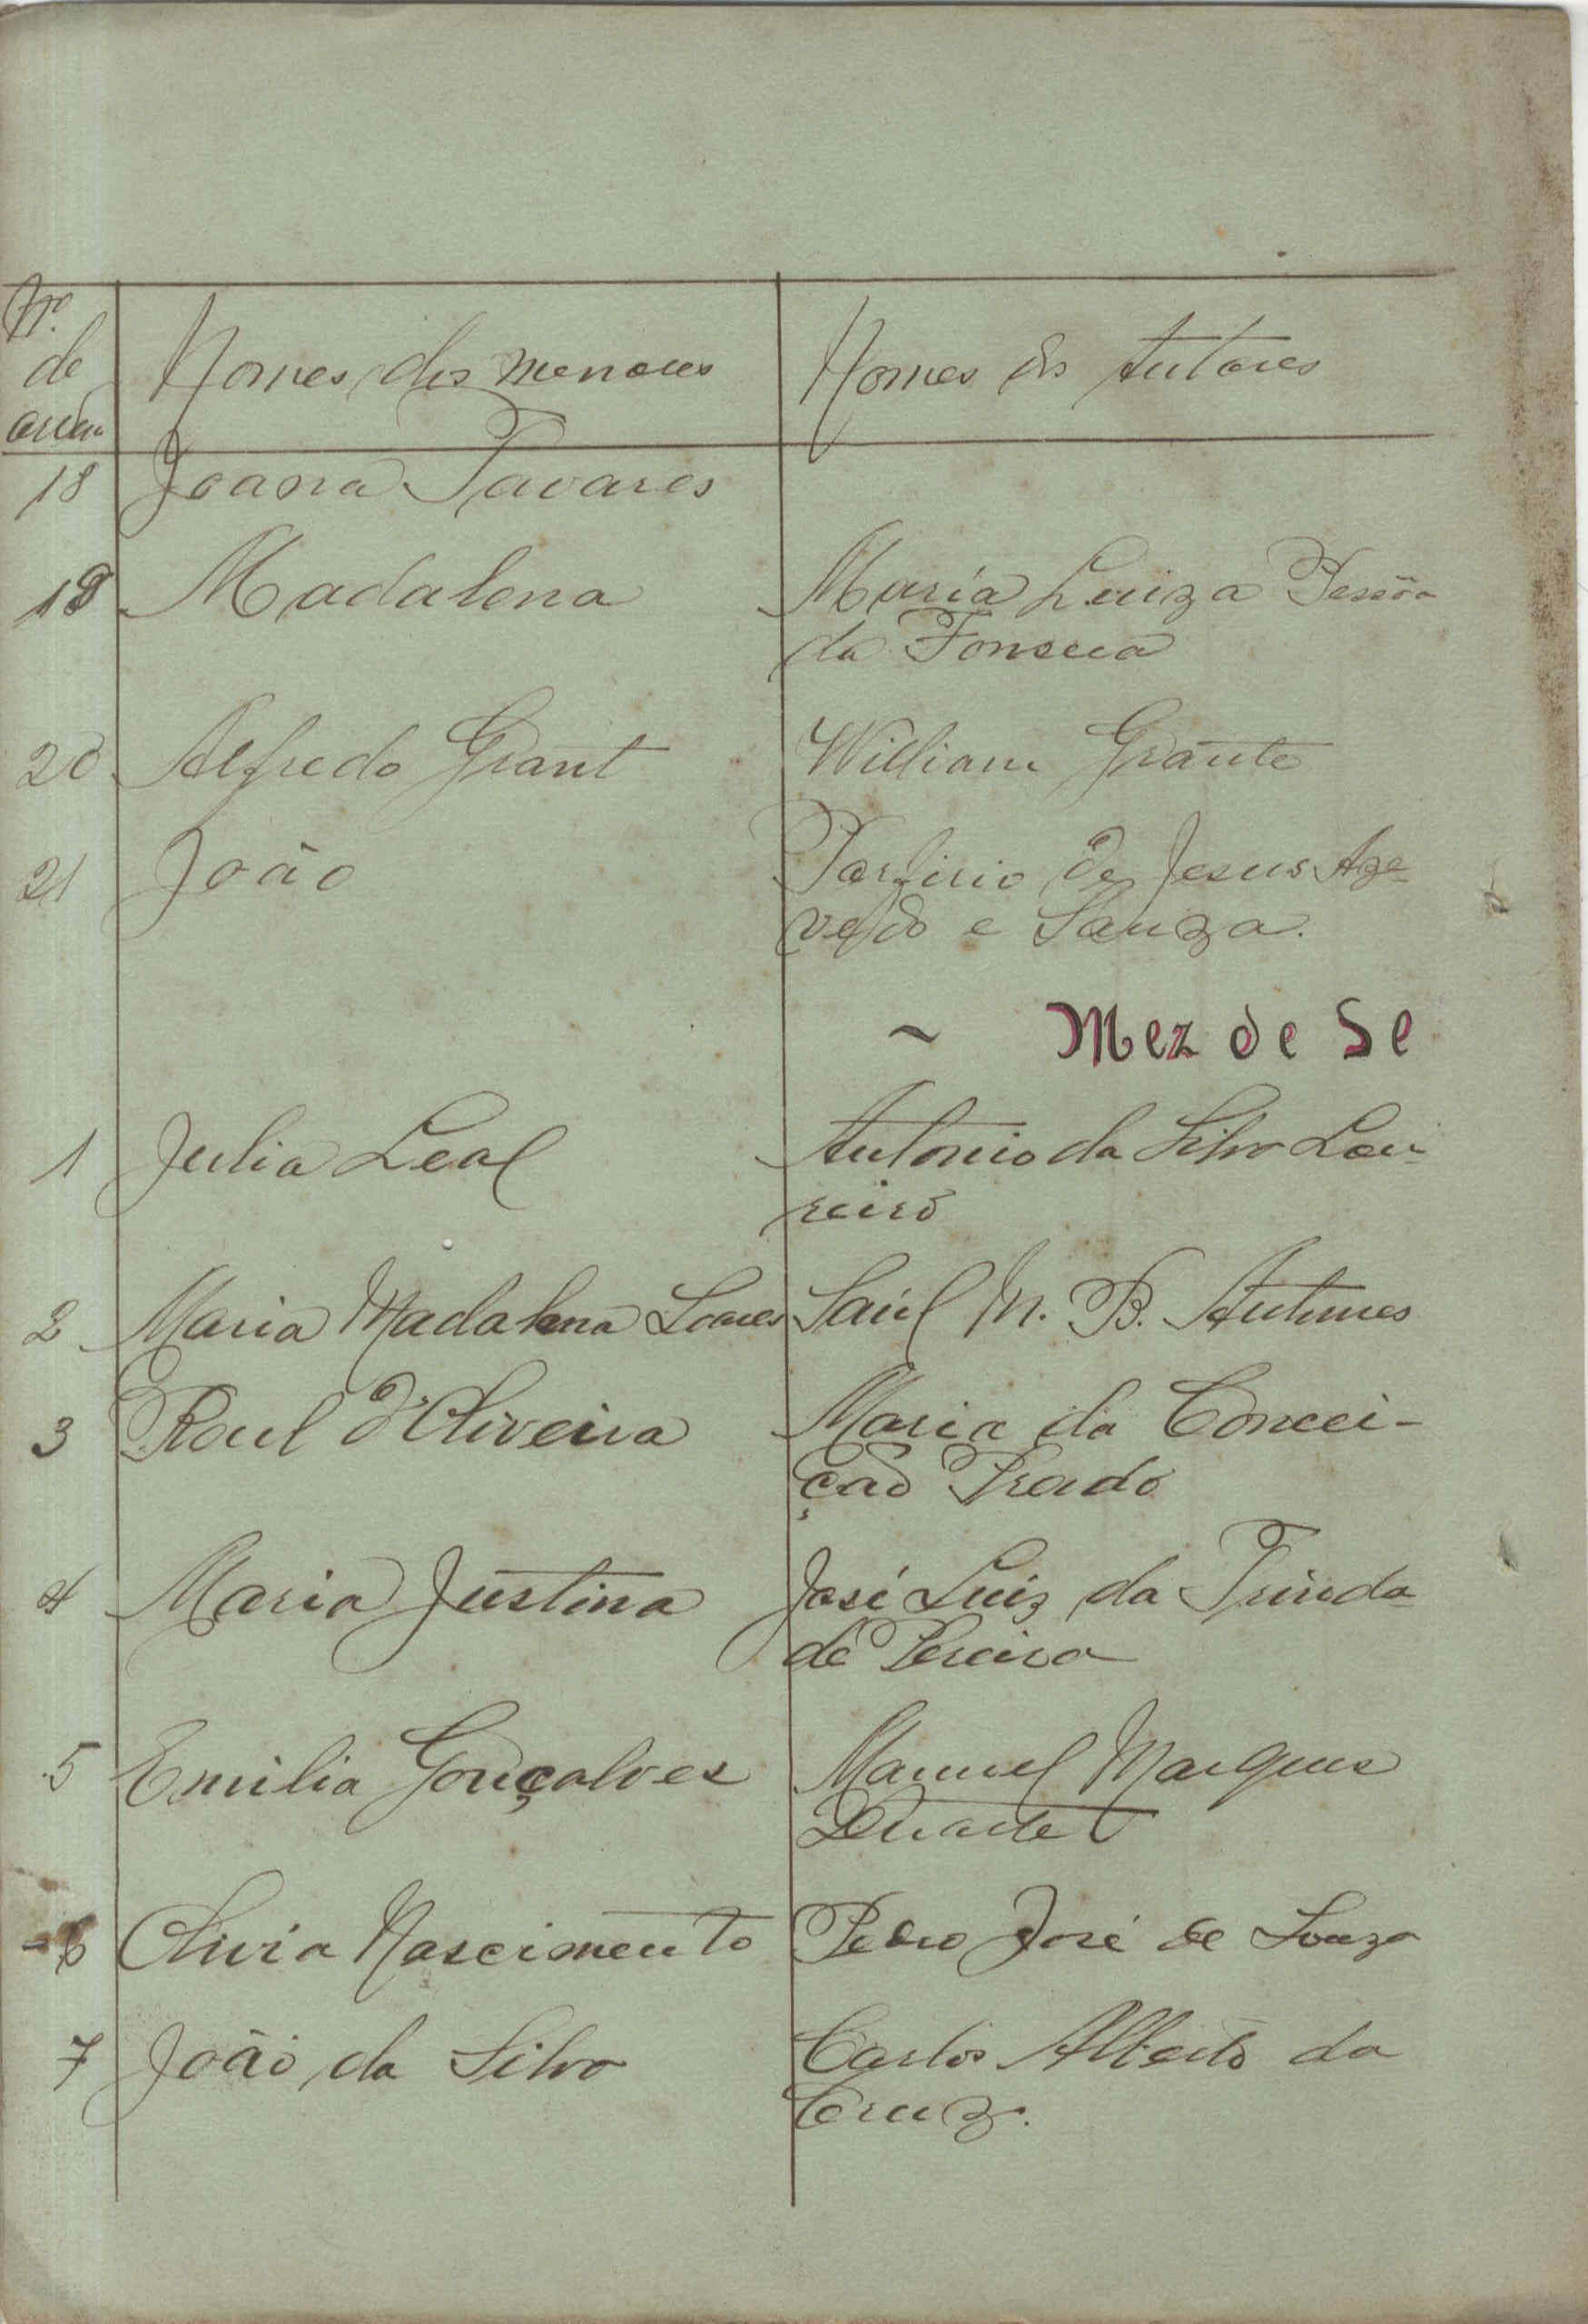 Nº
de
ordem
Nomes dos menores
Nomes dos tutores
18 Joana Tavares
19 Madalena
Maria Luiza Pessôa
da Fonseca
20 Alfredo Grant
William Grante
21 João
Porfirio de Jesus Aze-
vedo e Souza.
~ Mez de Se
1 Julia Leal
Antonio da Silva Lou-
reiro
2 Maria Madalena Soares
Saúl M. B. Antunes
3 Raul d'Oliveira
Maria da Concei-
ção Prado
4 Maria Justina
José Luiz da Trinda-
de Pereira
5 Emilia Gonçalves
Manuel Marques
Duarte
6 Olivia Nascimento
Pedro José de Souza
7 João da Silva
Carlos Alberto da
Cruz.